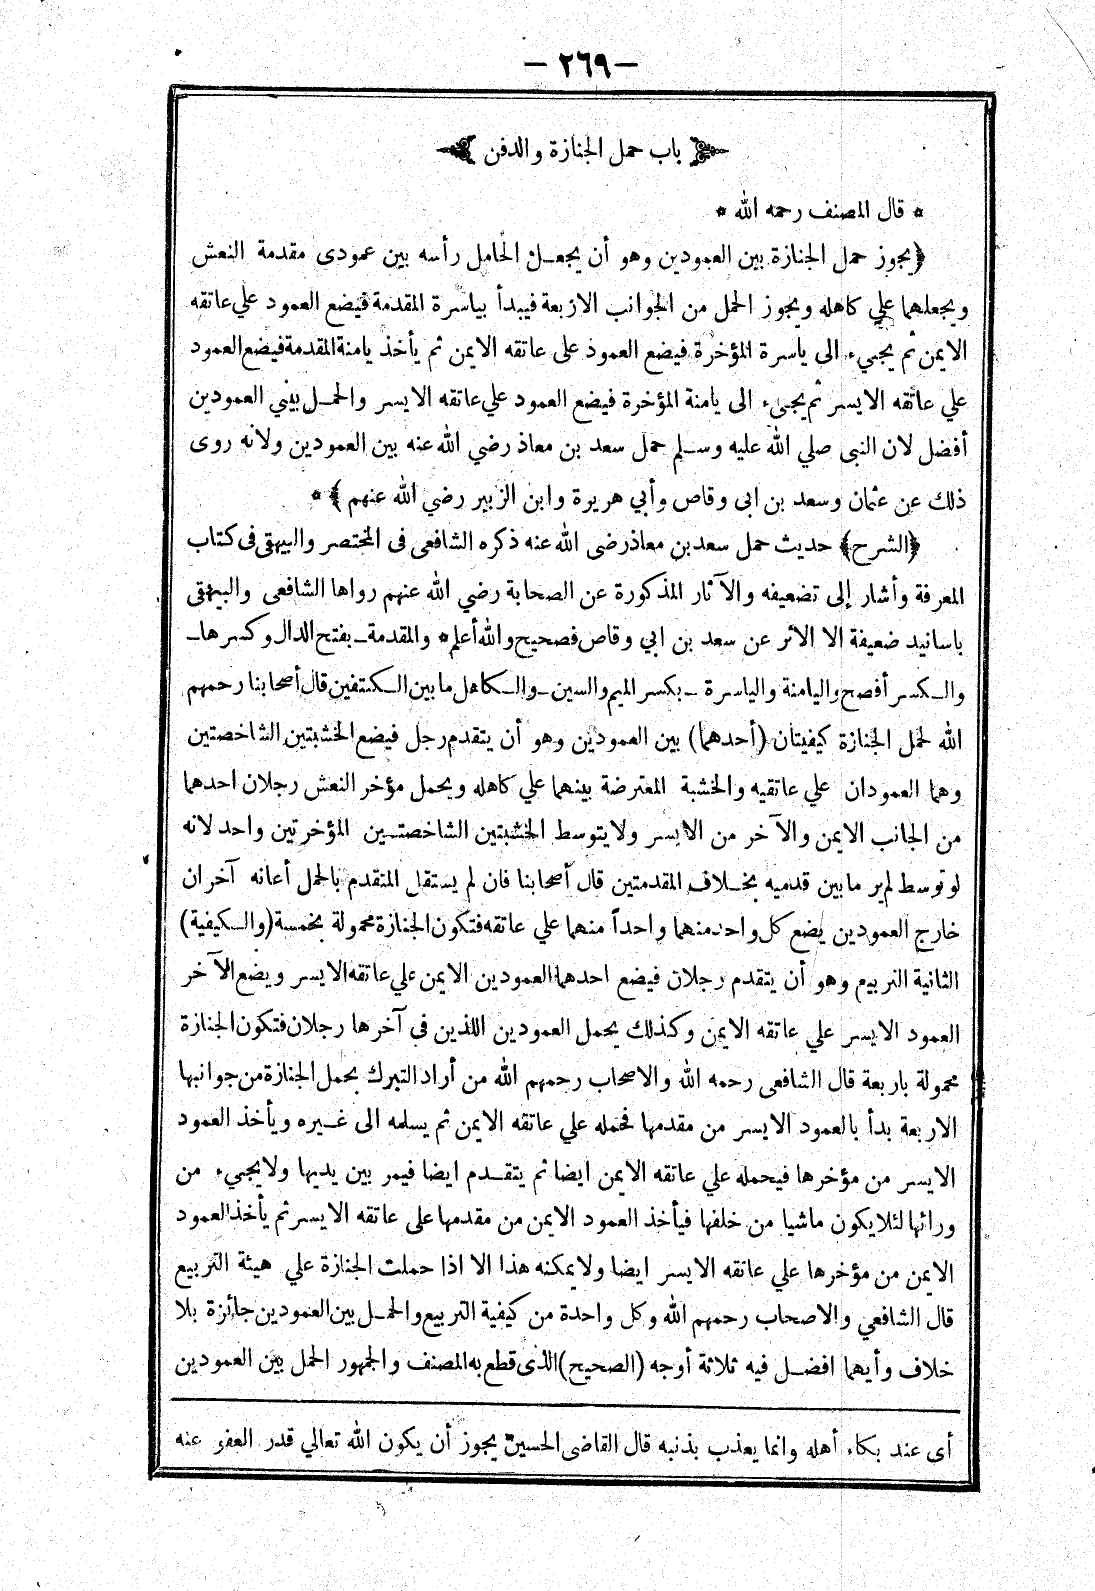 — ٢٦٩ —
باب حمل الجنازة والدفن
* قال المصنف رحمه الله *
﴿يجوز حمل الجنازة بين العمودين وهو أن يجعل الحامل رأسه بين عمودى مقدمة النعش
ويجعلهما علي كاهله ويجوز الحمل من الجوانب الاربعة فيبدأ بياسرة المقدمة فيضع العمود علي عاتقه
الايمن ثم يجيء الى ياسرة المؤخرة فيضع العمود على عاتقه الايمن ثم يأخذ يامنة المقدمة فيضع العمود
علي عاتقه الايسر ثم يجيء الى يامنة المؤخرة فيضع العمود علي عاتقه الايسر والحمل بين العمودين
أفضل لان النبى صلي الله عليه وسلم حمل سعد بن معاذ رضي الله عنه بين العمودين ولانه روى
ذلك عن عثمان وسعد بن ابى وقاص وأبي هريرة وابن الزبير رضي الله عنهم﴾ *
﴿الشرح﴾ حديث حمل سعد بن معاذ رضى الله عنه ذكره الشافعى فى المختصر والبيهقى فى كتاب
المعرفة وأشار إلى تضعيفه والآثار المذكورة عن الصحابة رضي الله عنهم رواها الشافعى والبيهقى
باسانيد ضعيفة الا الاثر عن سعد بن ابي وقاص فصحيح والله أعلم * والمقدمة ـ بفتح الدال وكسرها ـ
والكسر أفصح واليامنة والياسرة ـ بكسر الميم والسين ـ والكاهل ما بين الكتفين قال أصحابنا رحمهم
الله لحمل الجنازة كيفيتان (أحدهما) بين العمودين وهو أن يتقدم رجل فيضع الخشبتين الشاخصتين
وهما العمودان علي عاتقيه والخشبة المعترضة بينهما علي كاهله ويحمل مؤخر النعش رجلان احدهما
من الجانب الايمن والآخر من الايسر ولا يتوسط الخشبتين الشاخصتين المؤخرتين واحد لانه
لو توسط لم ير ما بين قدميه بخلاف المقدمتين قال أصحابنا فان لم يستقل المتقدم بالحمل أعانه آخران
خارج العمودين يضع كل واحد منهما واحداً منهما علي عاتقه فتكون الجنازة محمولة بخمسة (والكيفية)
الثانية التربيع وهو أن يتقدم رجلان فيضع احدهما العمودين الايمن علي عاتقه الايسر ويضع الآخر
العمود الايسر علي عاتقه الايمن وكذلك يحمل العمودين اللذين في آخرها رجلان فتكون الجنازة
محمولة باربعة قال الشافعى رحمه الله والاصحاب رحمهم الله من أراد التبرك بحمل الجنازة من جوانبها
الاربعة بدأ بالعمود الايسر من مقدمها فحمله علي عاتقه الايمن ثم يسلمه الى غيره ويأخذ العمود
الايسر من مؤخرها فيحمله علي عاتقه الايمن ايضا ثم يتقدم ايضا فيمر بين يديها ولا يجيء من
ورائها لئلا يكون ماشيا من خلفها فيأخذ العمود الايمن من مقدمها على عاتقه الايسر ثم يأخذ العمود
الايمن من مؤخرها علي عاتقه الايسر ايضا ولا يمكنه هذا الا اذا حملت الجنازة علي هيئة التربيع
قال الشافعي والاصحاب رحمهم الله وكل واحدة من كيفية التربيع والحمل بين العمودين جائزة بلا
خلاف وأيهما افضل فيه ثلاثة أوجه (الصحيح) الذى قطع به المصنف والجمهور الحمل بين العمودين
أى عند بكاء أهله وانما يعذب بذنبه قال القاضى الحسين يجوز أن يكون الله تعالي قدر العفو عنه